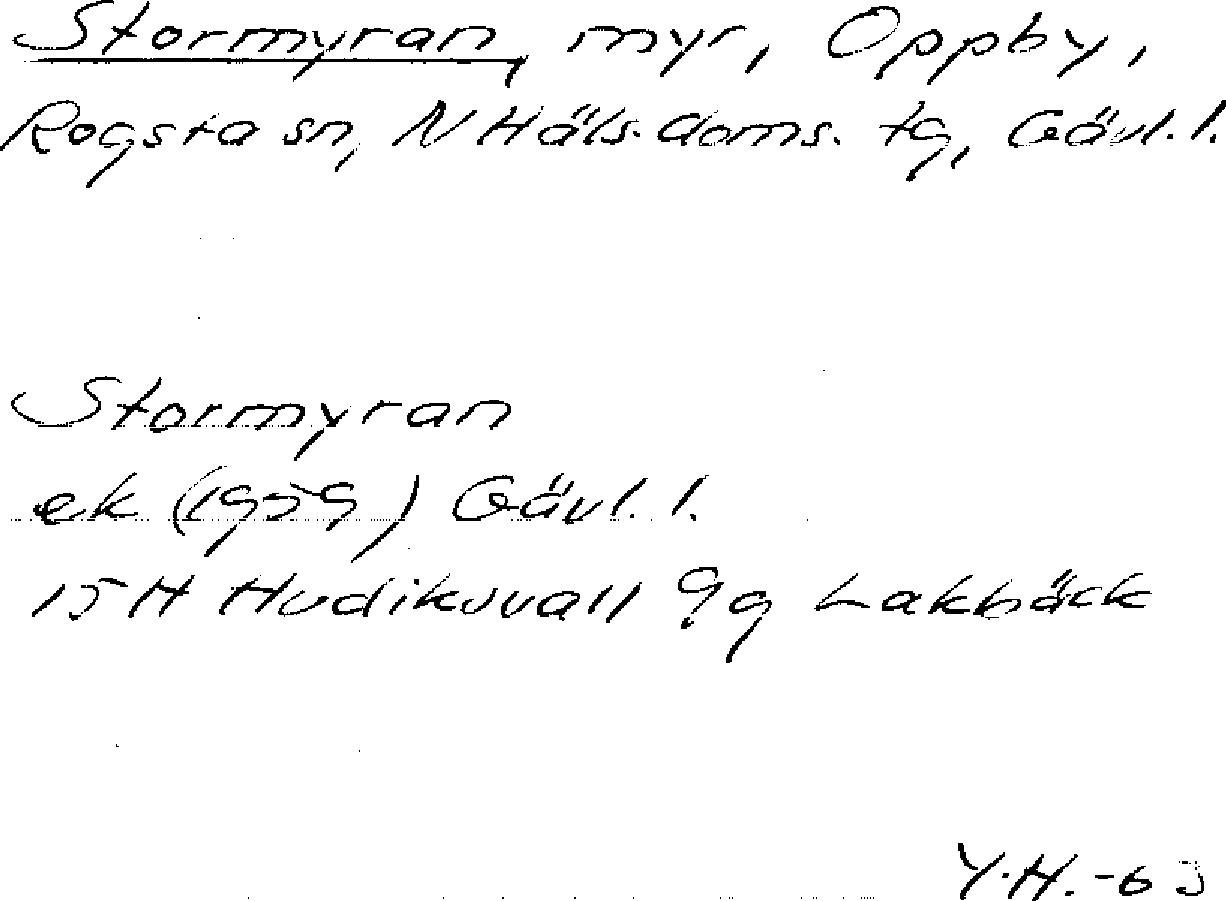 Stormyran, myr, Oppby,
Rogsta sn, N Häls. doms. tg, Gävl. l.
Stormyran
ek (1959) Gävl. l.
15H Hudiksvall 9g Lakbäck
Y.H. -63